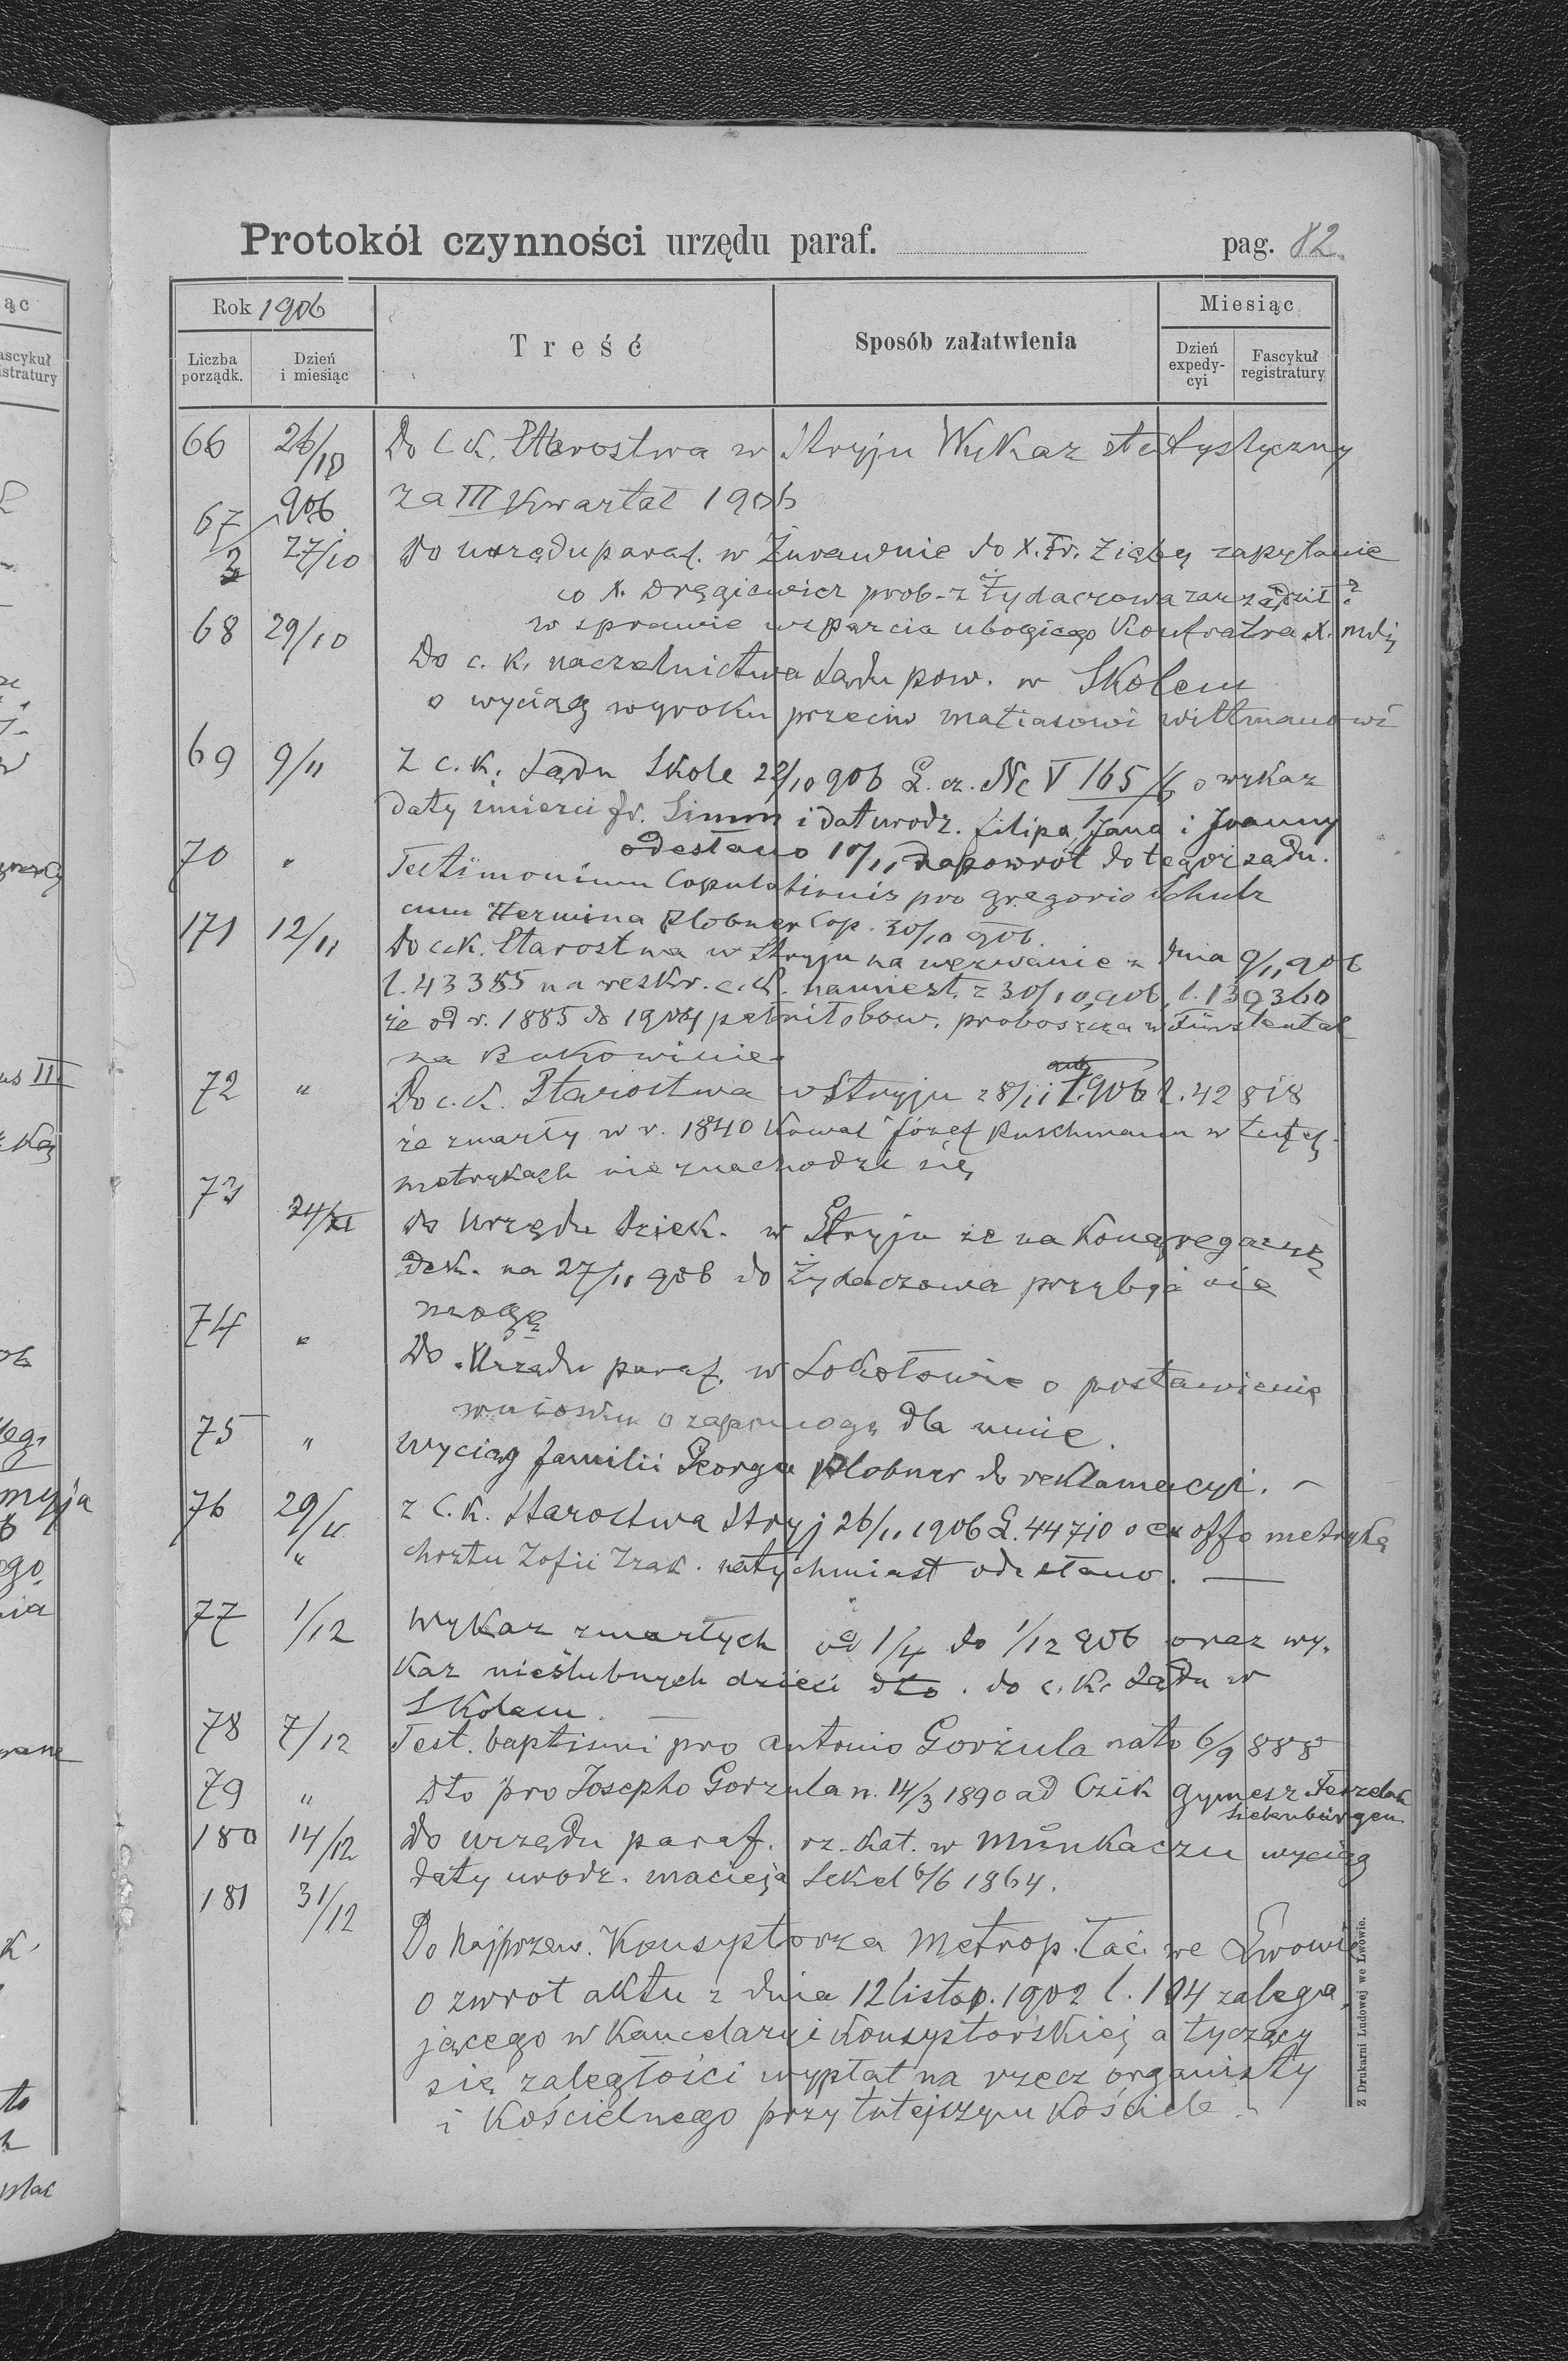 Protokół czynności urzędu paraf. pag. 82
Rok 1906
Liczba porządk.
Dzień i miesiąc
Treść
Sposób załatwienia
Miesiąc
Dzień expedycyi
Fascykuł registratury
66 26/10 906 Do C.K. Starostwa w Stryju Wykaz statystyczny
za III Kwartał 1906
67/2 27/10 Do urzędu paraf. w Żurawnie do X. Fr. Zięby zapytanie
co X. Drągiewicz prob. z Żydaczowa zarządził?
w sprawie wsparcia ubogiego Konfratra X.
68 29/10 Do c. k. naczelnictwa Sądu pow. w Skolem
o wyciąg wyroku przeciw Matiasowi Wittmanowi
69 9/11 Z c. k. Sądu Skole 22/10 906 L. cz. Nc V 165/6 o wykaz
daty śmierci Fr. Simm i dat urodz. Filipa, Jana i Joanny
odesłano 10/11 napowrót do tegoż sądu.
70 " Testimonium Copulationis pro Gregorio Schulz
cum Hermina Plobner Cop. 30/10 906.
171 12/11 Do c.k. Starostwa w Stryju na wezwanie z dnia 9/11 906
l. 43385 na reskr. c.k. namiest. z 30/10 906, l. 139360
że od r. 1885 do 1904 pełnił obow. proboszcza w Fürstental
na Bukowinie
72 " Do c. k. Starostwa w Stryju z 8/11 1906 l. 42818
że zmarły w r. 1840 Kowal Józef Puschmann w tutej.
metrykach nie znachodzi się
73 24/XI do Urzędu Dziek. w Stryju że na Kongregacyę
Dek. na 27/11 906 do Żydaczowa przybyć nie
mogę
74 " Do Urzędu paraf. w Sokołowie o postawienie
wniosku o zapomogę dla mnie.
75 " Wyciąg familii Georga Plobner do reklamacyi. —
76 29/11 z C. K. Starostwa Stryj 26/11 1906 L. 44710 o ex offo metrykę
" chrztu Zofii Zrak. natychmiast odesłano. —
77 1/12 Wykaz zmarłych od 1/4 do 1/12 906 oraz wy-
kaz nieślubnych dzieci dto. do c. k. Sądu w
Skolem. —
78 7/12 Test. baptismi pro Antonio Gorzula nato 6/9 888
79 " dto pro Josepho Gorzula n. 14/3 1890 ad Czik Gymesz
Siebenbürgen
180 14/12 Do urzędu paraf. rz. kat. w Munkaczu wyciąg
daty urodz. Macieja Sekel 6/6 1864.
181 31/12 Do Najprzew. Konsystorza Metrop. łać. we Lwowie
o zwrot aktu z dnia 12 listop. 1902 l. 104 zalega-
jącego w Kancelaryi Konsystorskiej a tyczący
się zaległości wypłat na rzecz organisty
i Kościelnego przy tutejszym Kościele.
Z Drukarni Ludowej we Lwowie.